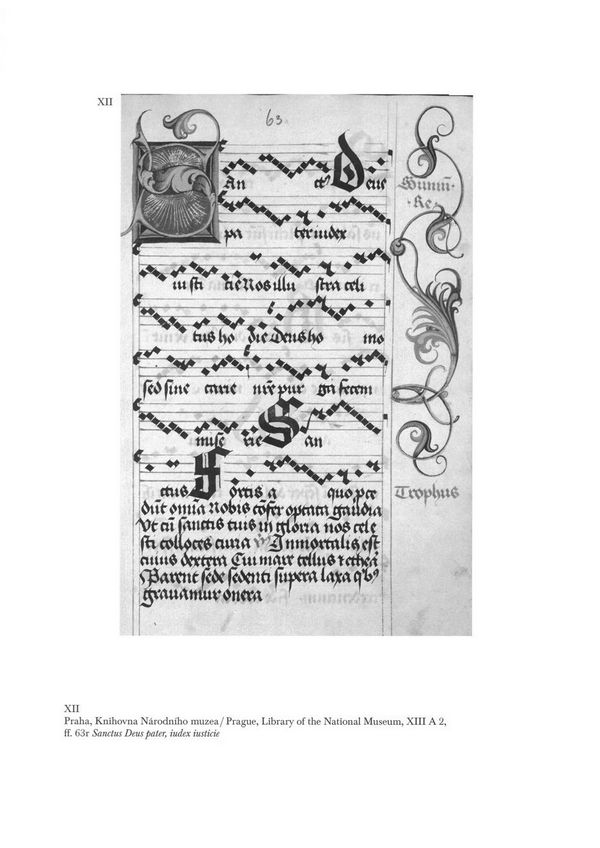 XII
63.
San ctꝰ Deus
Sum̄i
Re
pa ter iudex
iu sti cie Nos illu stra celi
tus ho die Deus ho mo
sed sine carie nr̄e pur ga fecem
mise rie San
ctus Fortis a quo pce
dūt om̄ia nobis cōfer optata gaudia
Vt cū sanctis tuis in gloria nos cele
sti colloces curia Inmortalis est
cuius dextera Cui mare tellus ⁊ ethera
Parent sede sedenti supera laxa qͥbꝰ
gravamur onera
Trophus
XII
Praha, Knihovna Národního muzea / Prague, Library of the National Museum, XIII A 2,
ff. 63r Sanctus Deus pater, iudex iusticie